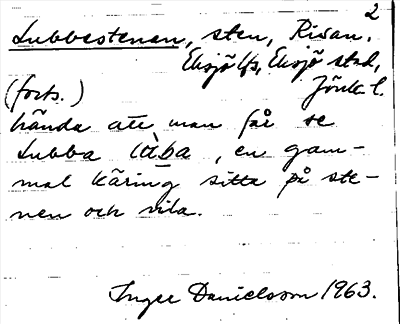 2
Lubbestenen, sten, Ridan.
Eksjö lfs, Eksjö stad,
(forts.) Jönk l.
hända att man får se
Lubba , en gam-
mal käring sitta på ste-
nen och vila.
Inger Danielsson 1963.